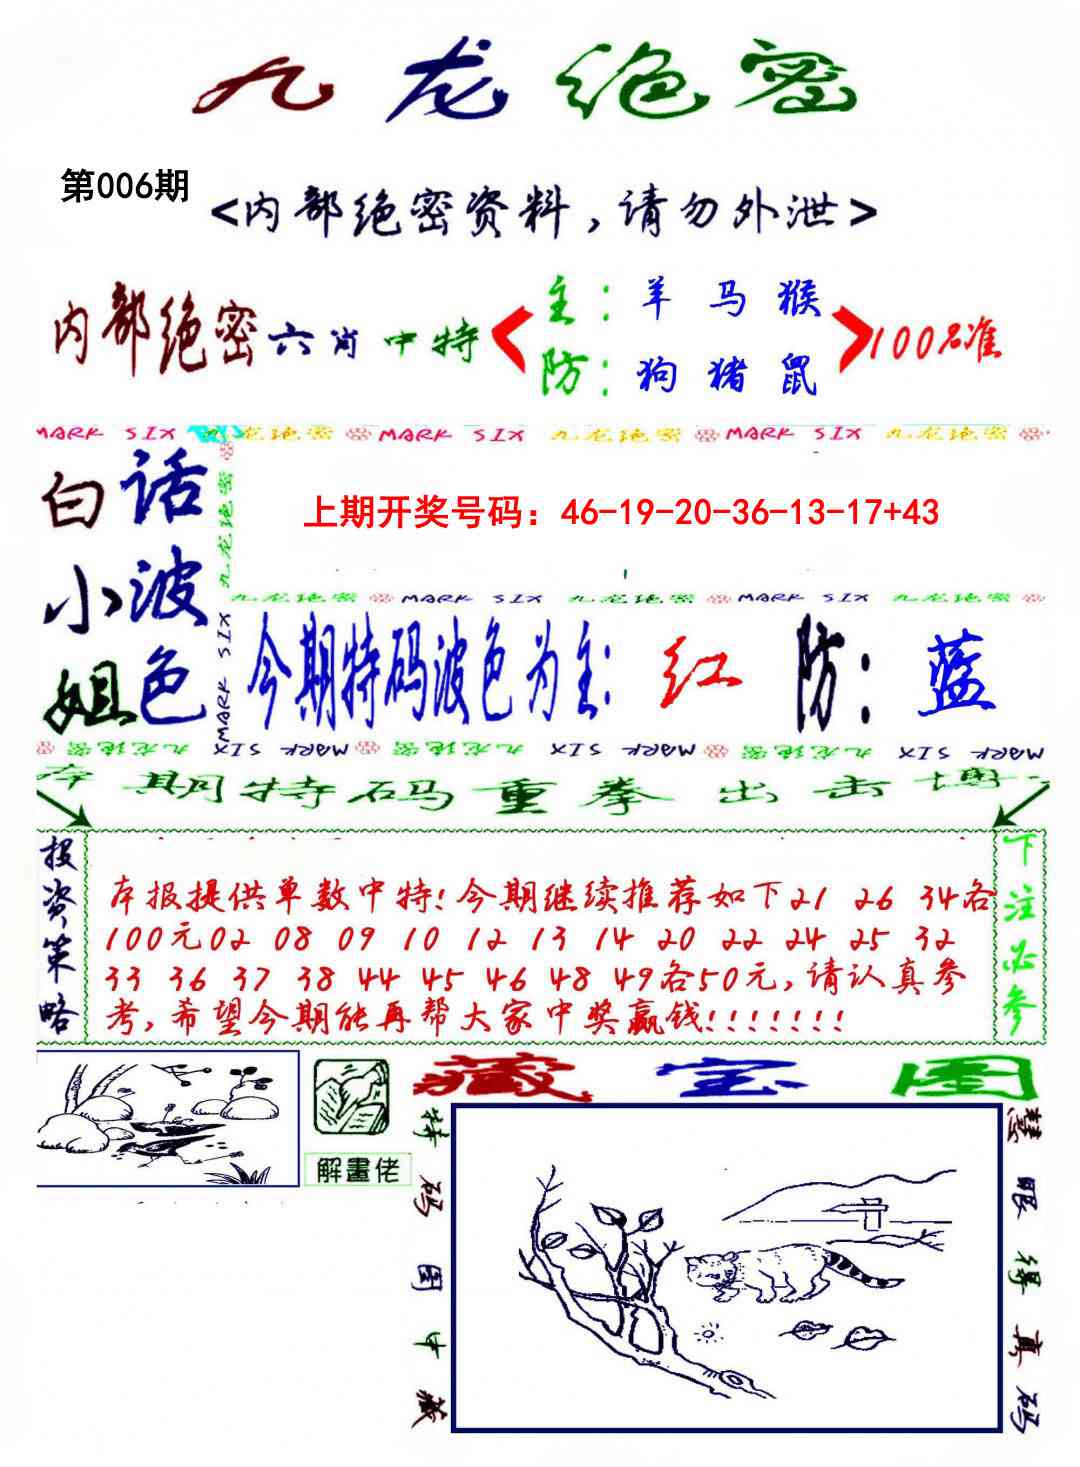 九龙绝密
第006期
<内部绝密资料,请勿外泄>
内部绝密六肖中特
主:羊马猴
防:狗猪鼠
100%准
MARK SIX 九龙绝密 MARK SIX 九龙绝密 MARK SIX 九龙绝密
白话
小波
姐色
九龙绝密
MARK SIX
MARK SIX
上期开奖号码:46-19-20-36-13-17+43
九龙绝密 MARK SIX 九龙绝密 MARK SIX 九龙绝密
今期特码波色为主:红 防:蓝
九龙绝密 MARK SIX 九龙绝密 MARK SIX 九龙绝密 MARK SIX
本期特码重拳出击博
投资策略
本报提供单数中特!今期继续推荐如下21 26 34各
100元02 08 09 10 12 13 14 20 22 24 25 32
33 36 37 38 44 45 46 48 49各50元,请认真参
考,希望今期能再帮大家中奖赢钱!!!!!!!
下注必参
解畫佬
藏宝图
特码图中藏
慧眼得真码